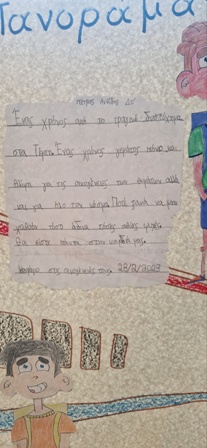 Πανοραμα
Ένας χρόνος από το τραγικό δυστύχημα
στα Τέμπη. Ένας χρόνος γεμάτος πόνο και
θλίψη για τις οικογένειες των θυμάτων αλλά
και για όλο τον κόσμο. Ποτέ ξανά να μην
χαθούν τόσο άδικα τόσες αθώες ψυχές.
Θα είστε πάντα στην καρδιά μας.
στις οικογένειες σας. 28/2/2023